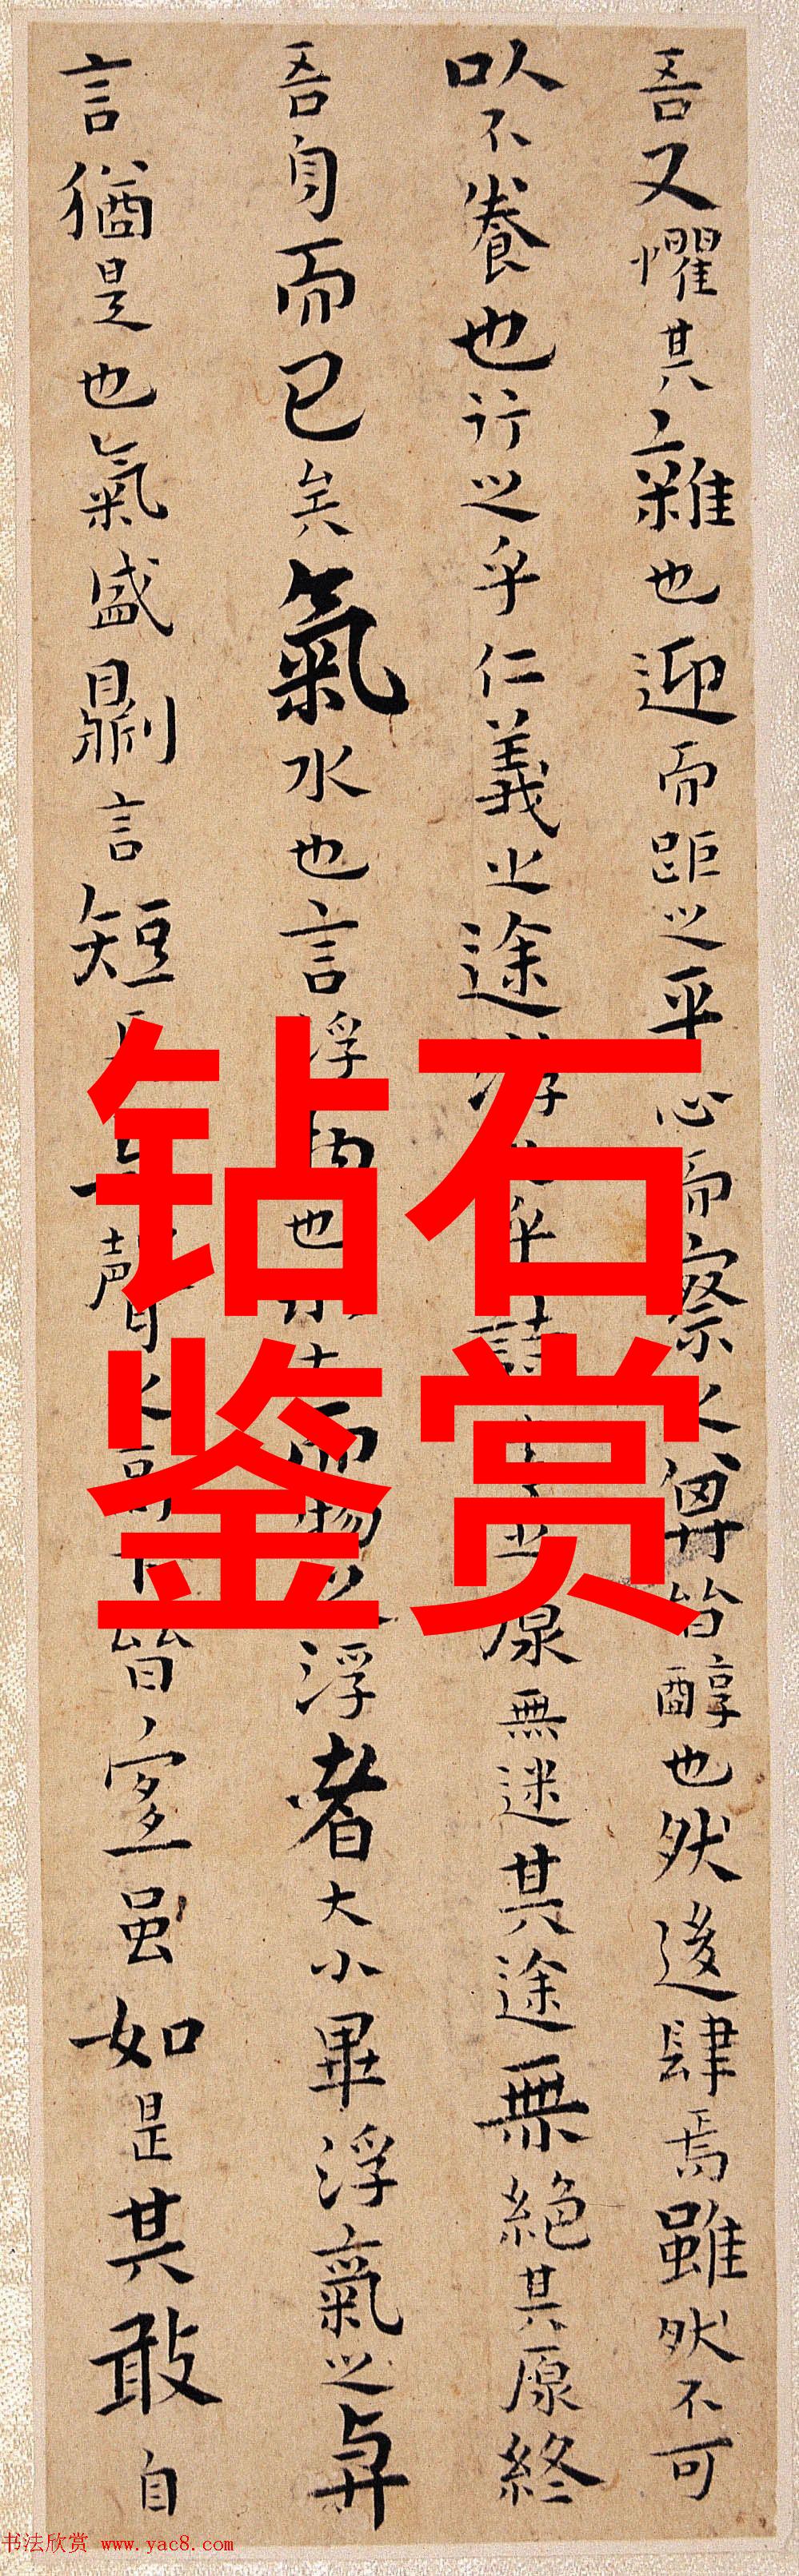 吾又懼其雜也迎而距之平心而察之其皆醇也然後肆焉雖然不可
以不養也行之乎仁義之途游之乎詩書之原無迷其途無絕其原終
吾身而已矣氣水也言浮物也水大而物之浮者大小畢浮氣之與
言猶是也氣盛則言短長與聲之高下皆宜虽如是其敢自
钻石
鉴赏
书法欣赏 www.yac8.com